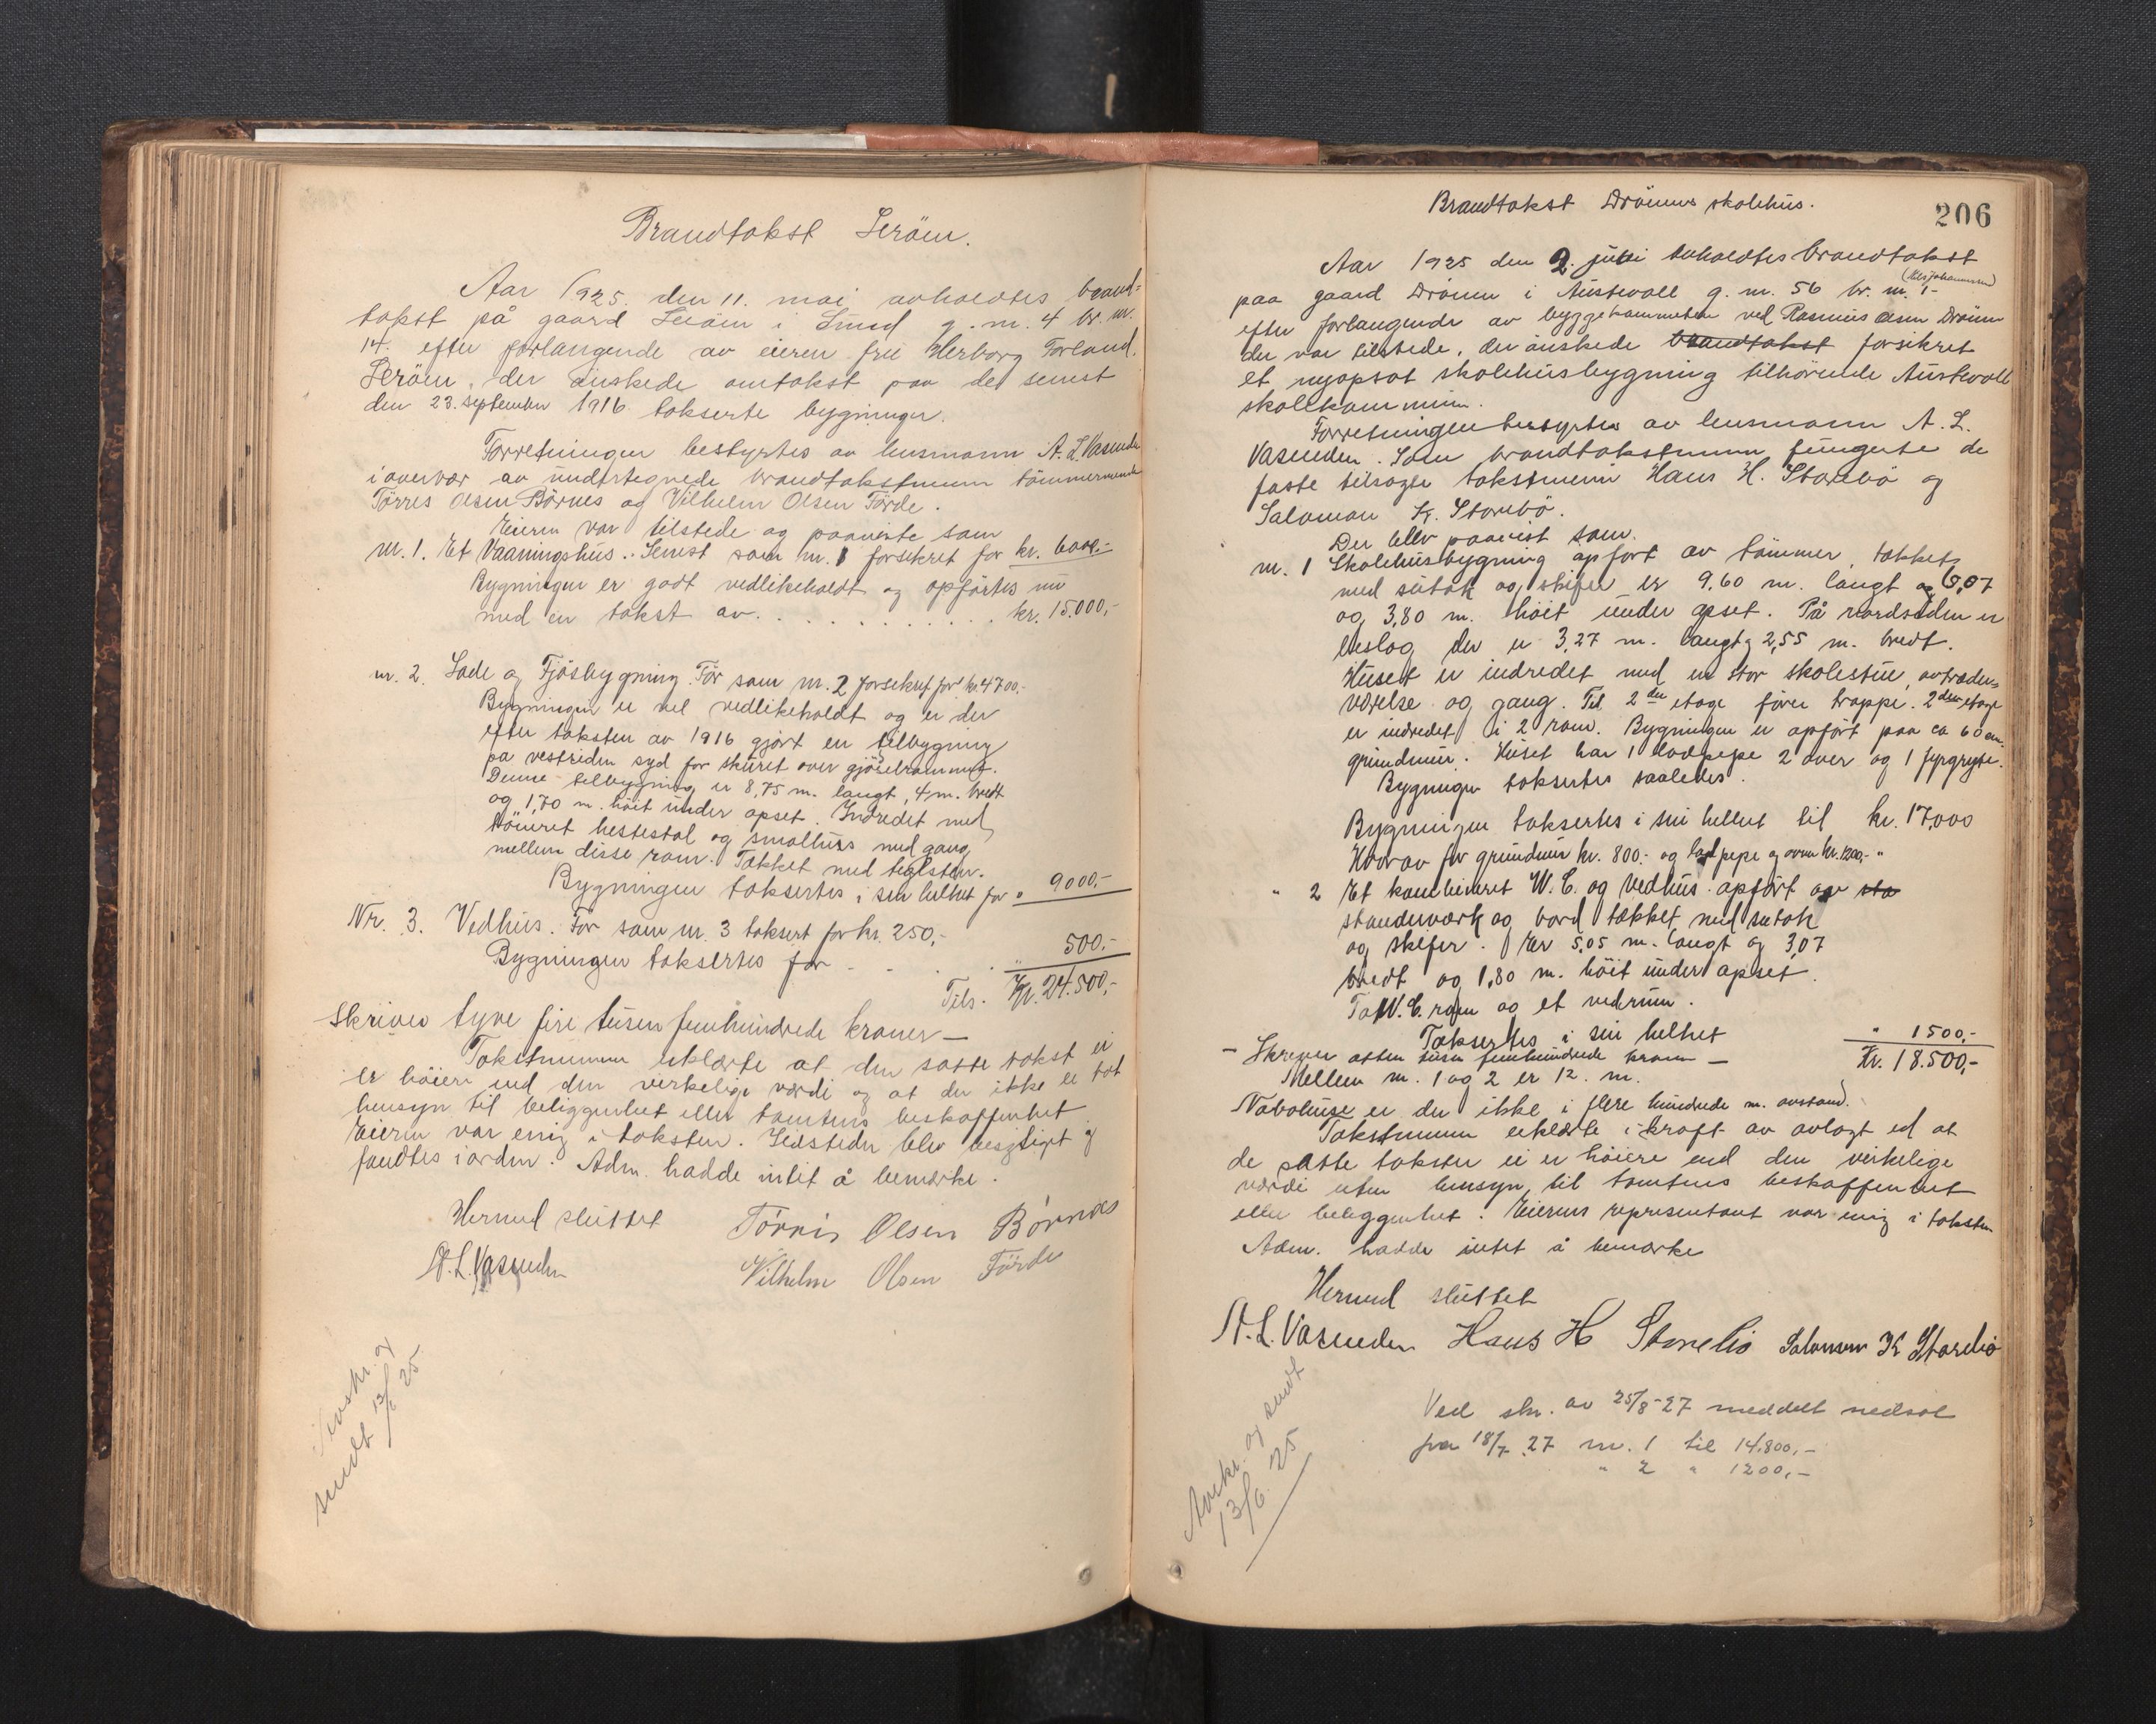 Brandtakst Leröen.
Aar 1925. den 11. mai avholdtes brand-
takst på gaard Leröen i Sund g. nr. 4 br. nr.
14. efter forlangende av eieren fru Herborg Forland.
Leröen, der önskede omtakst paa de senest
den 23. september 1916 takserte bygninger.
Forretningen bestyrtes av lensmann A. L. Vasenden
i overvær av undertegnede brandtakstmenn tömmermenn
Törres Olsen Börnes og Vilhelm Olsen Förde.
Eieren var tilstede og paaviste som
nr. 1. Et Vaaningshus. Senest som nr. 1 forsikret for kr. 6000.-
Bygningen er godt vedlikeholdt og opförtes nu
med en takst av . . . . . . . . . . . . kr. 15.000,-
nr. 2. Lade og Fjösbygning. För som nr. 2 forsikret for kr. 4700.-
Bygningen er vel vedlikeholdt og er der
efter taksten av 1916 gjört en tilbygning
på vestsiden syd for skuret over gjödselrummet.
Denne tilbygning er 8,75 m. langt, 4 m. bredt
og 1,70 m. höit under opset. Indredet med
hestestal og smalhus med gang
mellem disse rom. Tækket med teglsten.
Bygningen taksertes i sin helhet for " 9000,-
Nr. 3. Vedhus. För som nr. 3 taksert for kr. 250,-
Bygningen taksertes for - . . . " 500.-
Tils. Kr. 24.500,-
Skriver tyve fire tusen femhundrede kroner —
Takstmennene erklærte at den satte takst ei
er höiere end den verkelige værdi og at der ikke er tat
hensyn til beliggenhet eller tomtens beskaffenhet
Eieren var enig i taksten. Ildsteder blev besigtiget og
fandtes i orden. Adm. hadde intet å bemerke.
Hermed sluttet
A. L. Vasenden
Törris Olsen Börnes
Vilhelm Olsen Förde
og
sendt 13/6 25
206
Brandtakst Drönens skolehus.
Aar 1925 den 2. juni avholdtes brandtakst
paa gaard Drönen i Austevoll g. nr. 56 br. nr. 1-
efter forlangende av byggekommiteen ved Rasmus Olsen Drönen
der var tilstede, der önskede brandtakst forsikret
et nyopsat skolehusbygning tilhörende Austevoll
skolekommune.
Forretningen bestyrtes av lensmann A. L.
Vasenden. Som brandtakstmenn fungerte de
faste tilsagte takstmenn Hans H. Storebö og
Salomon K. Storebö.
Der blev paavist som.
nr. 1 Skolehusbygning opfört av tömmer, tækket
med sutak og skifer er 9,60 m. langt og 6,07
og 3,80 m. höit under opset. På nordsiden er
beslag der er 3,27 m. langt og 2,55 m. bredt.
Huset er indredet med en stor skolestue, avtræden-
værelse og gang. Til 2den etage förer trappe. 2den etage
er indredet i 2 rom. Bygningen er opfört paa ca 60 cm.
grundmur. Huset har 1 lodpipe 2 over og 1 fyrgryte.
Bygningen taksertes saaledes.
Bygningen taksertes i sin helhet til kr. 17,000
Hvorav for grundmur kr. 800.- og lodpipe og ovner kr. 1200,- "
" 2 Et kombineret W. C. og Vedhus opfört av sta
stenderværk og bord tækket med sutak
og skifer. Er 5,05 m. langt og 3,07
bredt og 1,80 m. höit under opset.
To W. C. rom og et vedrum.
Taksertes i sin helhet " 1500,-
- Skriver atten tusen femhundrede kroner — Kr. 18.500,-
Mellem nr. 1 og 2 er 12. m.
Nabohuse er der ikke i flere hundrede m. avstand.
Takstmennene erklærte i kraft av avlagt ed at
de satte takster ei er höiere end den virkelige
værdi uten hensyn til tomtens beskaffenhet
eller beliggenhet. Eierens representant var enig i taksten
Adm. hadde intet å bemerke
Hermed sluttet
A. L. Vasenden Hans H Storebö Salomon K Storebö
Avskr. og sendt
13/6 25
Ved skr. av 25/8-27 meddelt nedsat
fra 18/7 27 nr. 1 til 14.800,-
" 2 " 1200,-